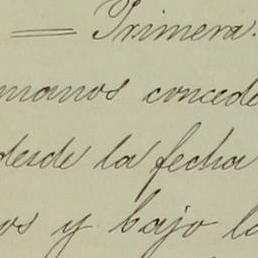 = Primera.
manos concede
desde la fecha
os y bajo la